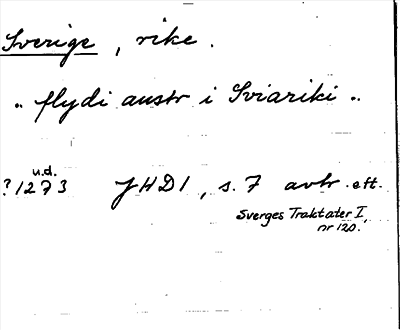 Sverige, rike.
" flydi austr i Sviariki ".
u.d.
? 1273 JHD 1, s. 7 avtr. eft.
Sverges Traktater I,
nr 120.